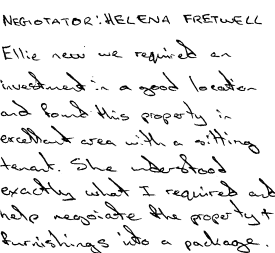 NEGIOTATOR: HELENA FRETWELL
Ellie new we required an
investment in a good location
and found this property in
excellent area with a sitting
tenant. She understood
exactly what I required and
help negoiate the property +
furnishings into a package.